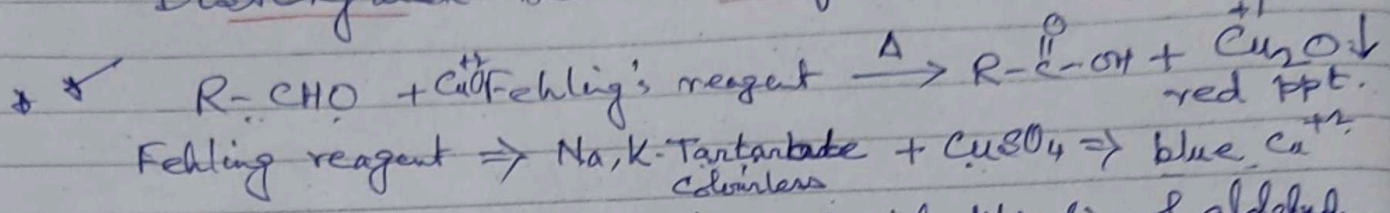 R-CHO + CuO Fehling's reagent Δ→ R-C(=O)-OH + Cu₂O↓
+2 +1
red ppt.
Fehling reagent ⇒ Na,K-Tartarbate + CuSO4 ⇒ blue Cu+2
Colourless